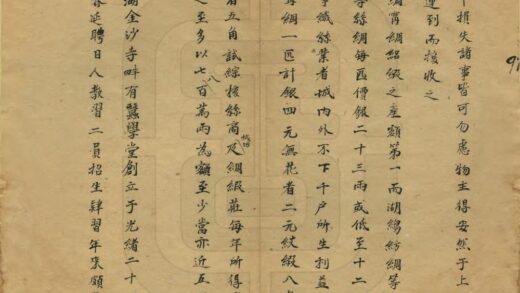 損失諸事皆可勿慮物主得安然于上
運到而接收之
綢寗綢綹緞之產額第一而湖縐紡綢等
等絲綢每匹價銀二十三兩或低至十二
事織絲業者城內外不下千戶所生利益
綢一匹計銀四元無花者二元紋緞八
者五角試綜核絲商及綢緞莊每年所得
城坊
至多以七八百萬兩為額至少當亦近五
湖金沙寺畔有蠶學堂創立于光緒二十
春延聘日人教習二員招生肄習年來頗